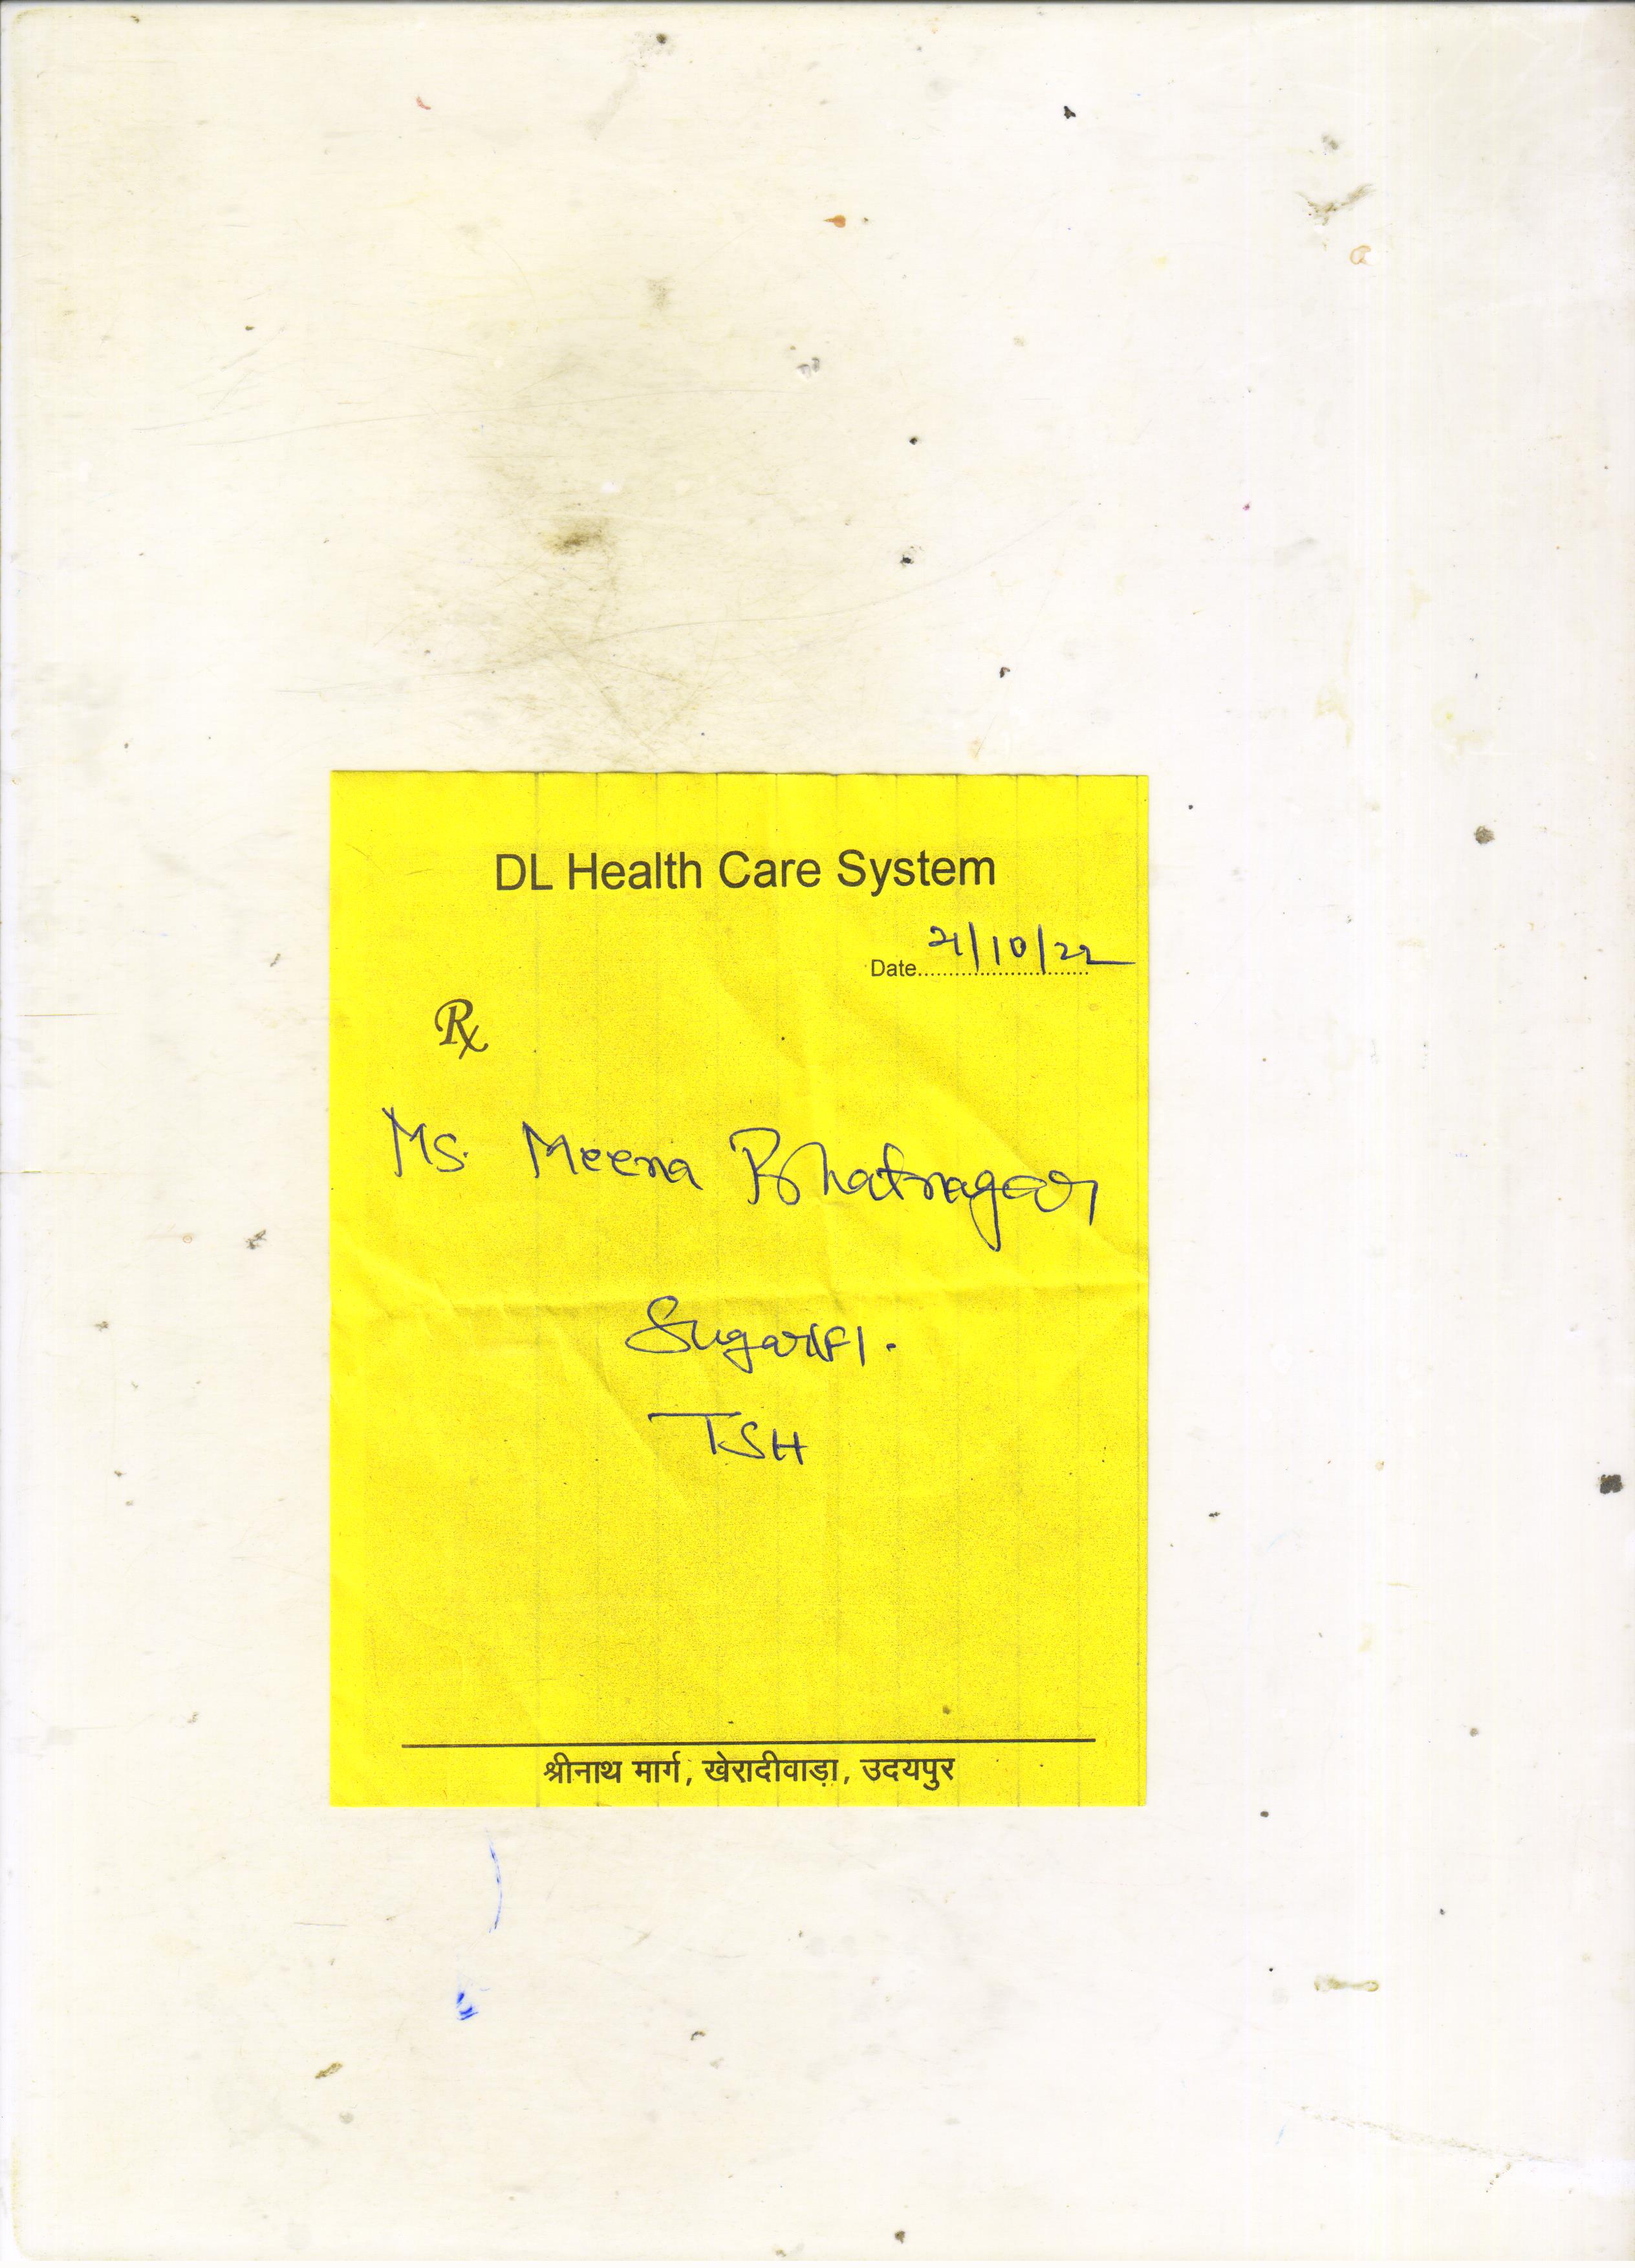 DL Health Care System
Date 21/10/22
Rx
Ms. Meena Bhatnagar
Sugar(F).
TSH
श्रीनाथ मार्ग, खेरादीवाड़ा, उदयपुर